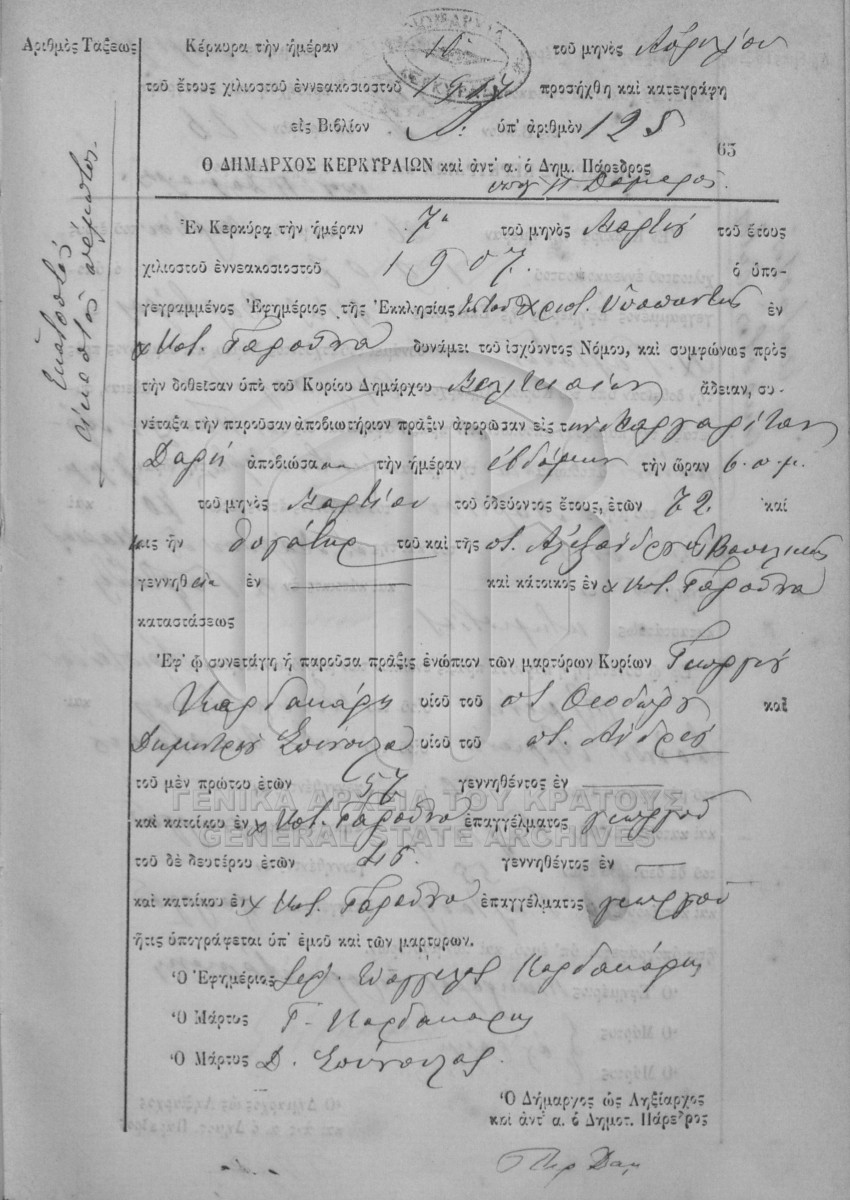 Ἀριθμὸς Τάξεως
Ἑκατοστὸς
εἰκοστὸς πέμπτος.
Κέρκυρα τὴν ἡμέραν τοῦ μηνὸς Ἀπριλίου
τοῦ ἔτους χιλιοστοῦ ἐννεακοσιοστοῦ 1907 προσήχθη καὶ κατεγράφη
εἰς Βιβλίον Α: ὑπ' ἀριθμὸν 125
63
Ο ΔΗΜΑΡΧΟΣ ΚΕΡΚΥΡΑΙΩΝ καὶ ἀντ' α. ὁ Δημ. Πάρεδρος
Ἐν Κερκύρᾳ τὴν ἡμέραν 7η τοῦ μηνὸς Μαρτίου τοῦ ἔτους
χιλιοστοῦ ἐννεακοσιοστοῦ 1907. ὁ ὑπο-
γεγραμμένος Ἐφημέριος τῆς Ἐκκλησίας Χριστ. Ὑπαπαντῆς ἐν
χ Κατ. Γαρούνα δυνάμει τοῦ ἰσχύοντος Νόμου, καὶ συμφώνως πρὸς
τὴν δοθεῖσαν ὑπὸ τοῦ Κυρίου Δημάρχου Μελιτειέων ἄδειαν, συ-
νέταξα τὴν παροῦσαν ἀποβιωτήριον πρᾶξιν ἀφορῶσαν εἰς τὴν Μαργαρίταν
Δαρῆ ἀποβιώσασαν τὴν ἡμέραν ἑβδόμην τὴν ὥραν 6. π. μ.
τοῦ μηνὸς Μαρτίου τοῦ ὁδεύοντος ἔτους, ἐτῶν 72. καὶ
ἥτις ἦν θυγάτηρ τοῦ καὶ τῆς ποτ. Ἀλεξάνδρου Βασιλικῆς
γεννηθεῖσα ἐν καὶ κάτοικος ἐν χ Κατ. Γαρούνα
καταστάσεως
Ἐφ' ᾧ συνετάγη ἡ παροῦσα πρᾶξις ἐνώπιον τῶν μαρτύρων Κυρίων Γεωργίου
Καρδακάρη υἱοῦ τοῦ ποτ. Θεοδώρου καὶ
Δημητρίου Σπίνουλα υἱοῦ τοῦ ποτ. Ἀνδρέου
τοῦ μὲν πρώτου ἐτῶν 57 γεννηθέντος ἐν
καὶ κατοίκου ἐν χ Κατ. Γαρούνα ἐπαγγέλματος γεωργοῦ
τοῦ δὲ δευτέρου ἐτῶν 45. γεννηθέντος ἐν
καὶ κατοίκου ἐν χ Κατ. Γαρούνα ἐπαγγέλματος γεωργοῦ
ἥτις ὑπογράφεται ὑπ' ἐμοῦ καὶ τῶν μαρτύρων.
Ὁ Ἐφημέριος Ἱερ. Καρδακάρης
Ὁ Μάρτυς Γ. Καρδακάρης
Ὁ Μάρτυς Δ. Σπίνουλας.
Ὁ Δήμαρχος ὡς Ληξίαρχος
καὶ ἀντ' α. ὁ Δημοτ. Πάρεδρος
ΓΕΝΙΚΑ ΑΡΧΕΙΑ ΤΟΥ ΚΡΑΤΟΥΣ
GENERAL STATE ARCHIVES